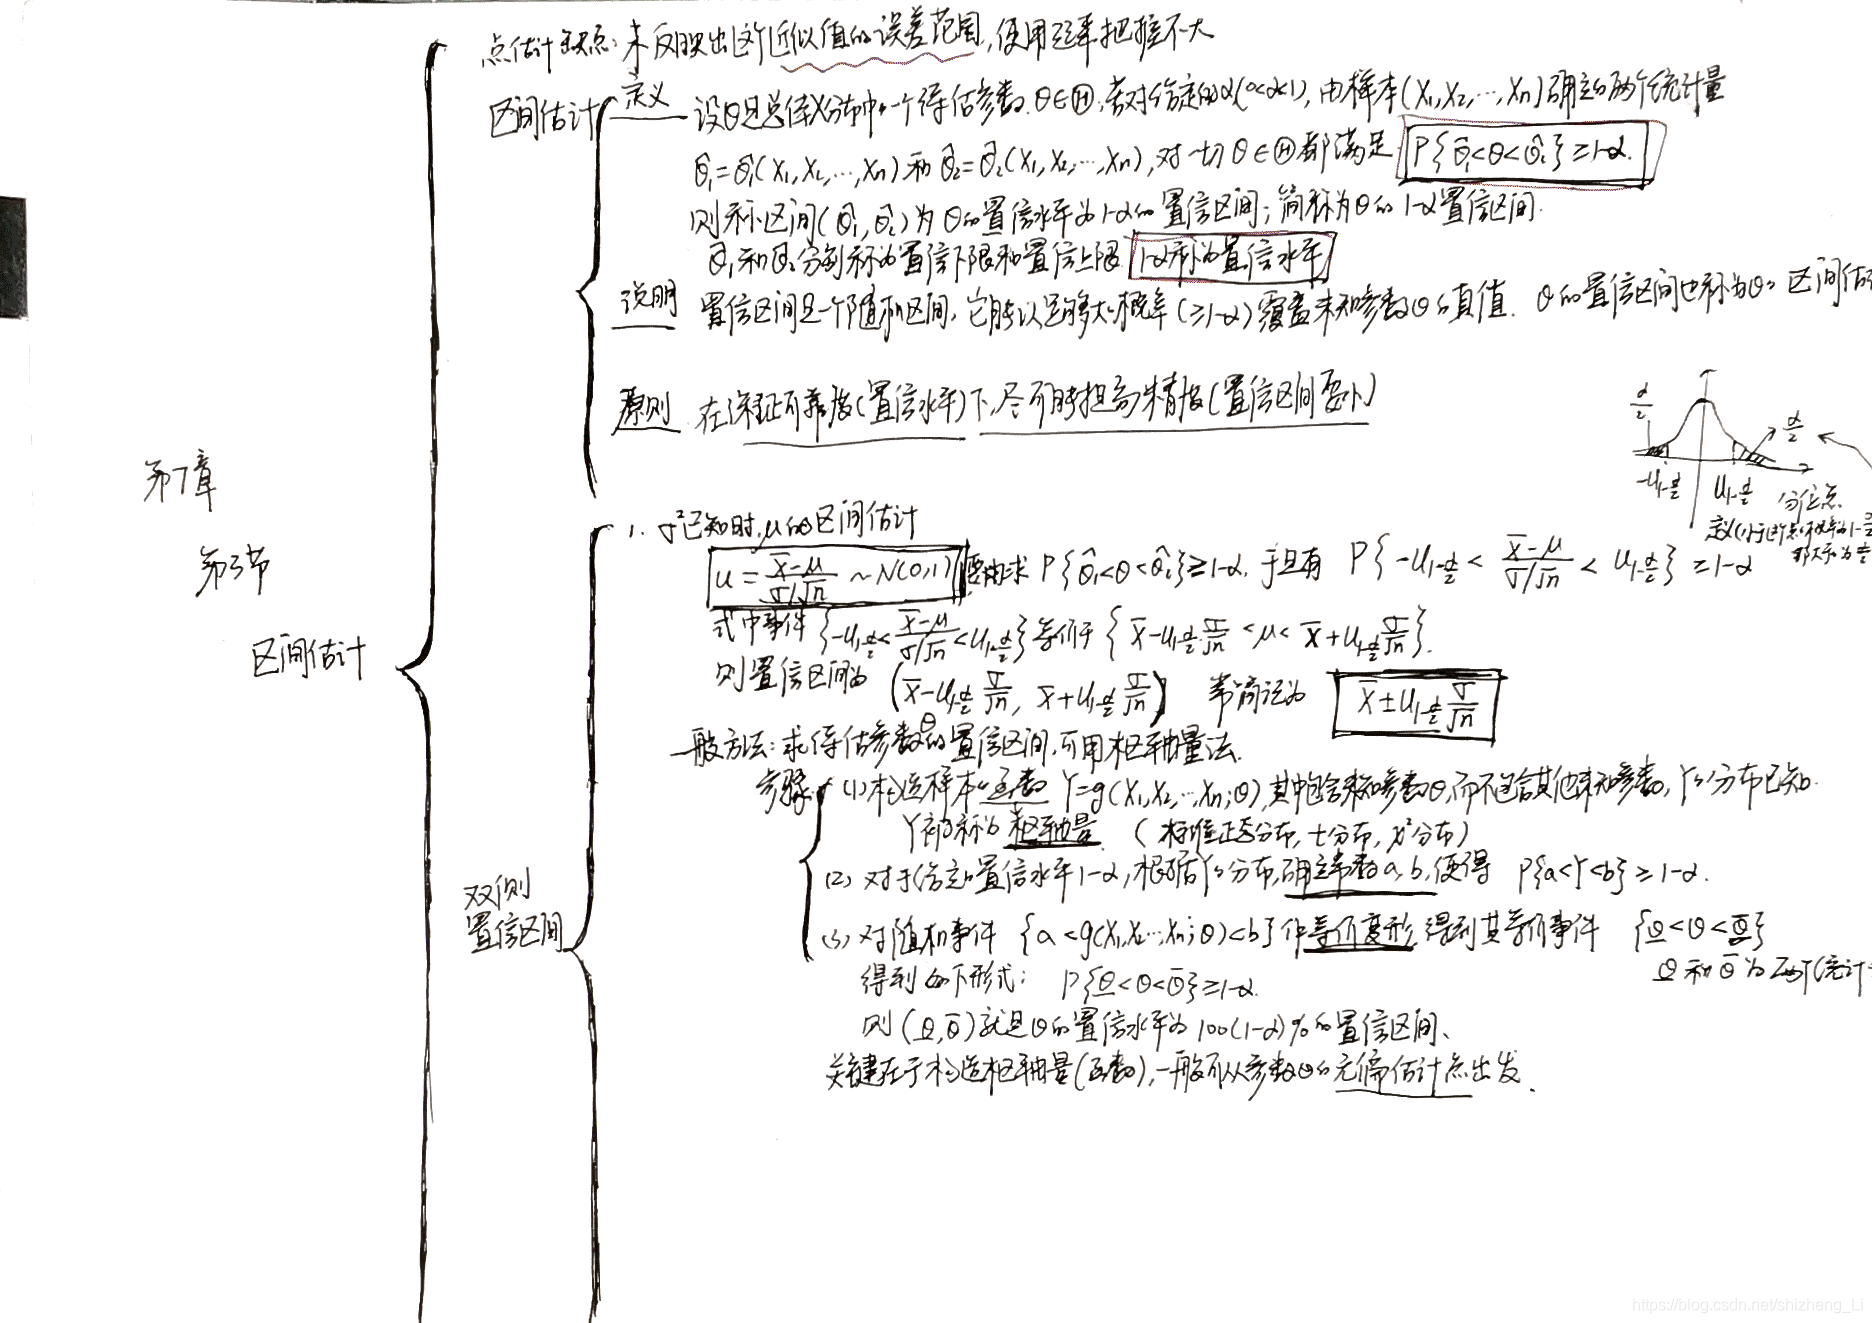 点估计缺点:未反映出这个近似值的误差范围,使用起来把握不大
区间估计
定义
设θ是总体X分布中一个待估参数.θ∈Ⓗ,若对给定的α(0<α<1),由样本(X₁,X₂,…,Xn)确定的两个统计量
θ̂₁=θ̂₁(X₁,X₂,…,Xn)和θ̂₂=θ̂₂(X₁,X₂,…,Xn),对一切θ∈Ⓗ都满足 P{θ̂₁<θ<θ̂₂}≥1-α.
则称区间(θ̂₁,θ̂₂)为θ的置信水平为1-α的置信区间;简称为θ的1-α置信区间.
θ̂₁和θ̂₂分别称为置信下限和置信上限 1-α称为置信水平
说明 置信区间是一个随机区间,它能以足够大的概率(≥1-α)覆盖未知参数θ的真值. θ的置信区间也称为θ的区间估
原则 在保证可靠度(置信水平)下,尽可能提高精度(置信区间要小)
α/2
α/2
-U1-α/2 U1-α/2 分位点
定义(小于这个点的概率为1-α/2
那大于为α/2
第7章
第3节
区间估计
双侧
置信区间
1. σ²已知时,μ的区间估计
u = (X̄-μ)/(σ/√n) ~ N(0,1) 要求 P{θ̂₁<θ<θ̂₂}≥1-α. 于是有 P{-U1-α/2 < (X̄-μ)/(σ/√n) < U1-α/2} ≥1-α
式中事件{-U1-α/2<(X̄-μ)/(σ/√n)<U1-α/2}等价于{X̄-U1-α/2·σ/√n <μ< X̄+U1-α/2 σ/√n}.
则置信区间为 (X̄-U1-α/2 σ/√n, X̄+U1-α/2 σ/√n) 常简记为 X̄±U1-α/2 σ/√n
一般方法:求待估参数θ的置信区间,可用枢轴量法.
步骤 (1) 构造样本的函数 Y=g(X₁,X₂,…,Xn;θ),其中包含未知参数θ,而不包含其他未知参数,Y的分布已知.
Y被称为枢轴量. (标准正态分布,t分布,χ²分布)
(2) 对于给定的置信水平1-α,根据Y的分布,确定常数a,b,使得 P{a<Y<b}≥1-α.
(3) 对随机事件 {a<g(X₁,X₂…,Xn;θ)<b}作等价变形,得到其等价事件 {θ̲<θ<θ̄}
θ̲和θ̄为两个统计
得到如下形式: P{θ̲<θ<θ̄}≥1-α.
则(θ̲,θ̄)就是θ的置信水平为100(1-α)%的置信区间、
关键在于构造枢轴量(函数),一般可从参数θ的无偏估计点出发.
https://blog.csdn.net/shizheng_Li